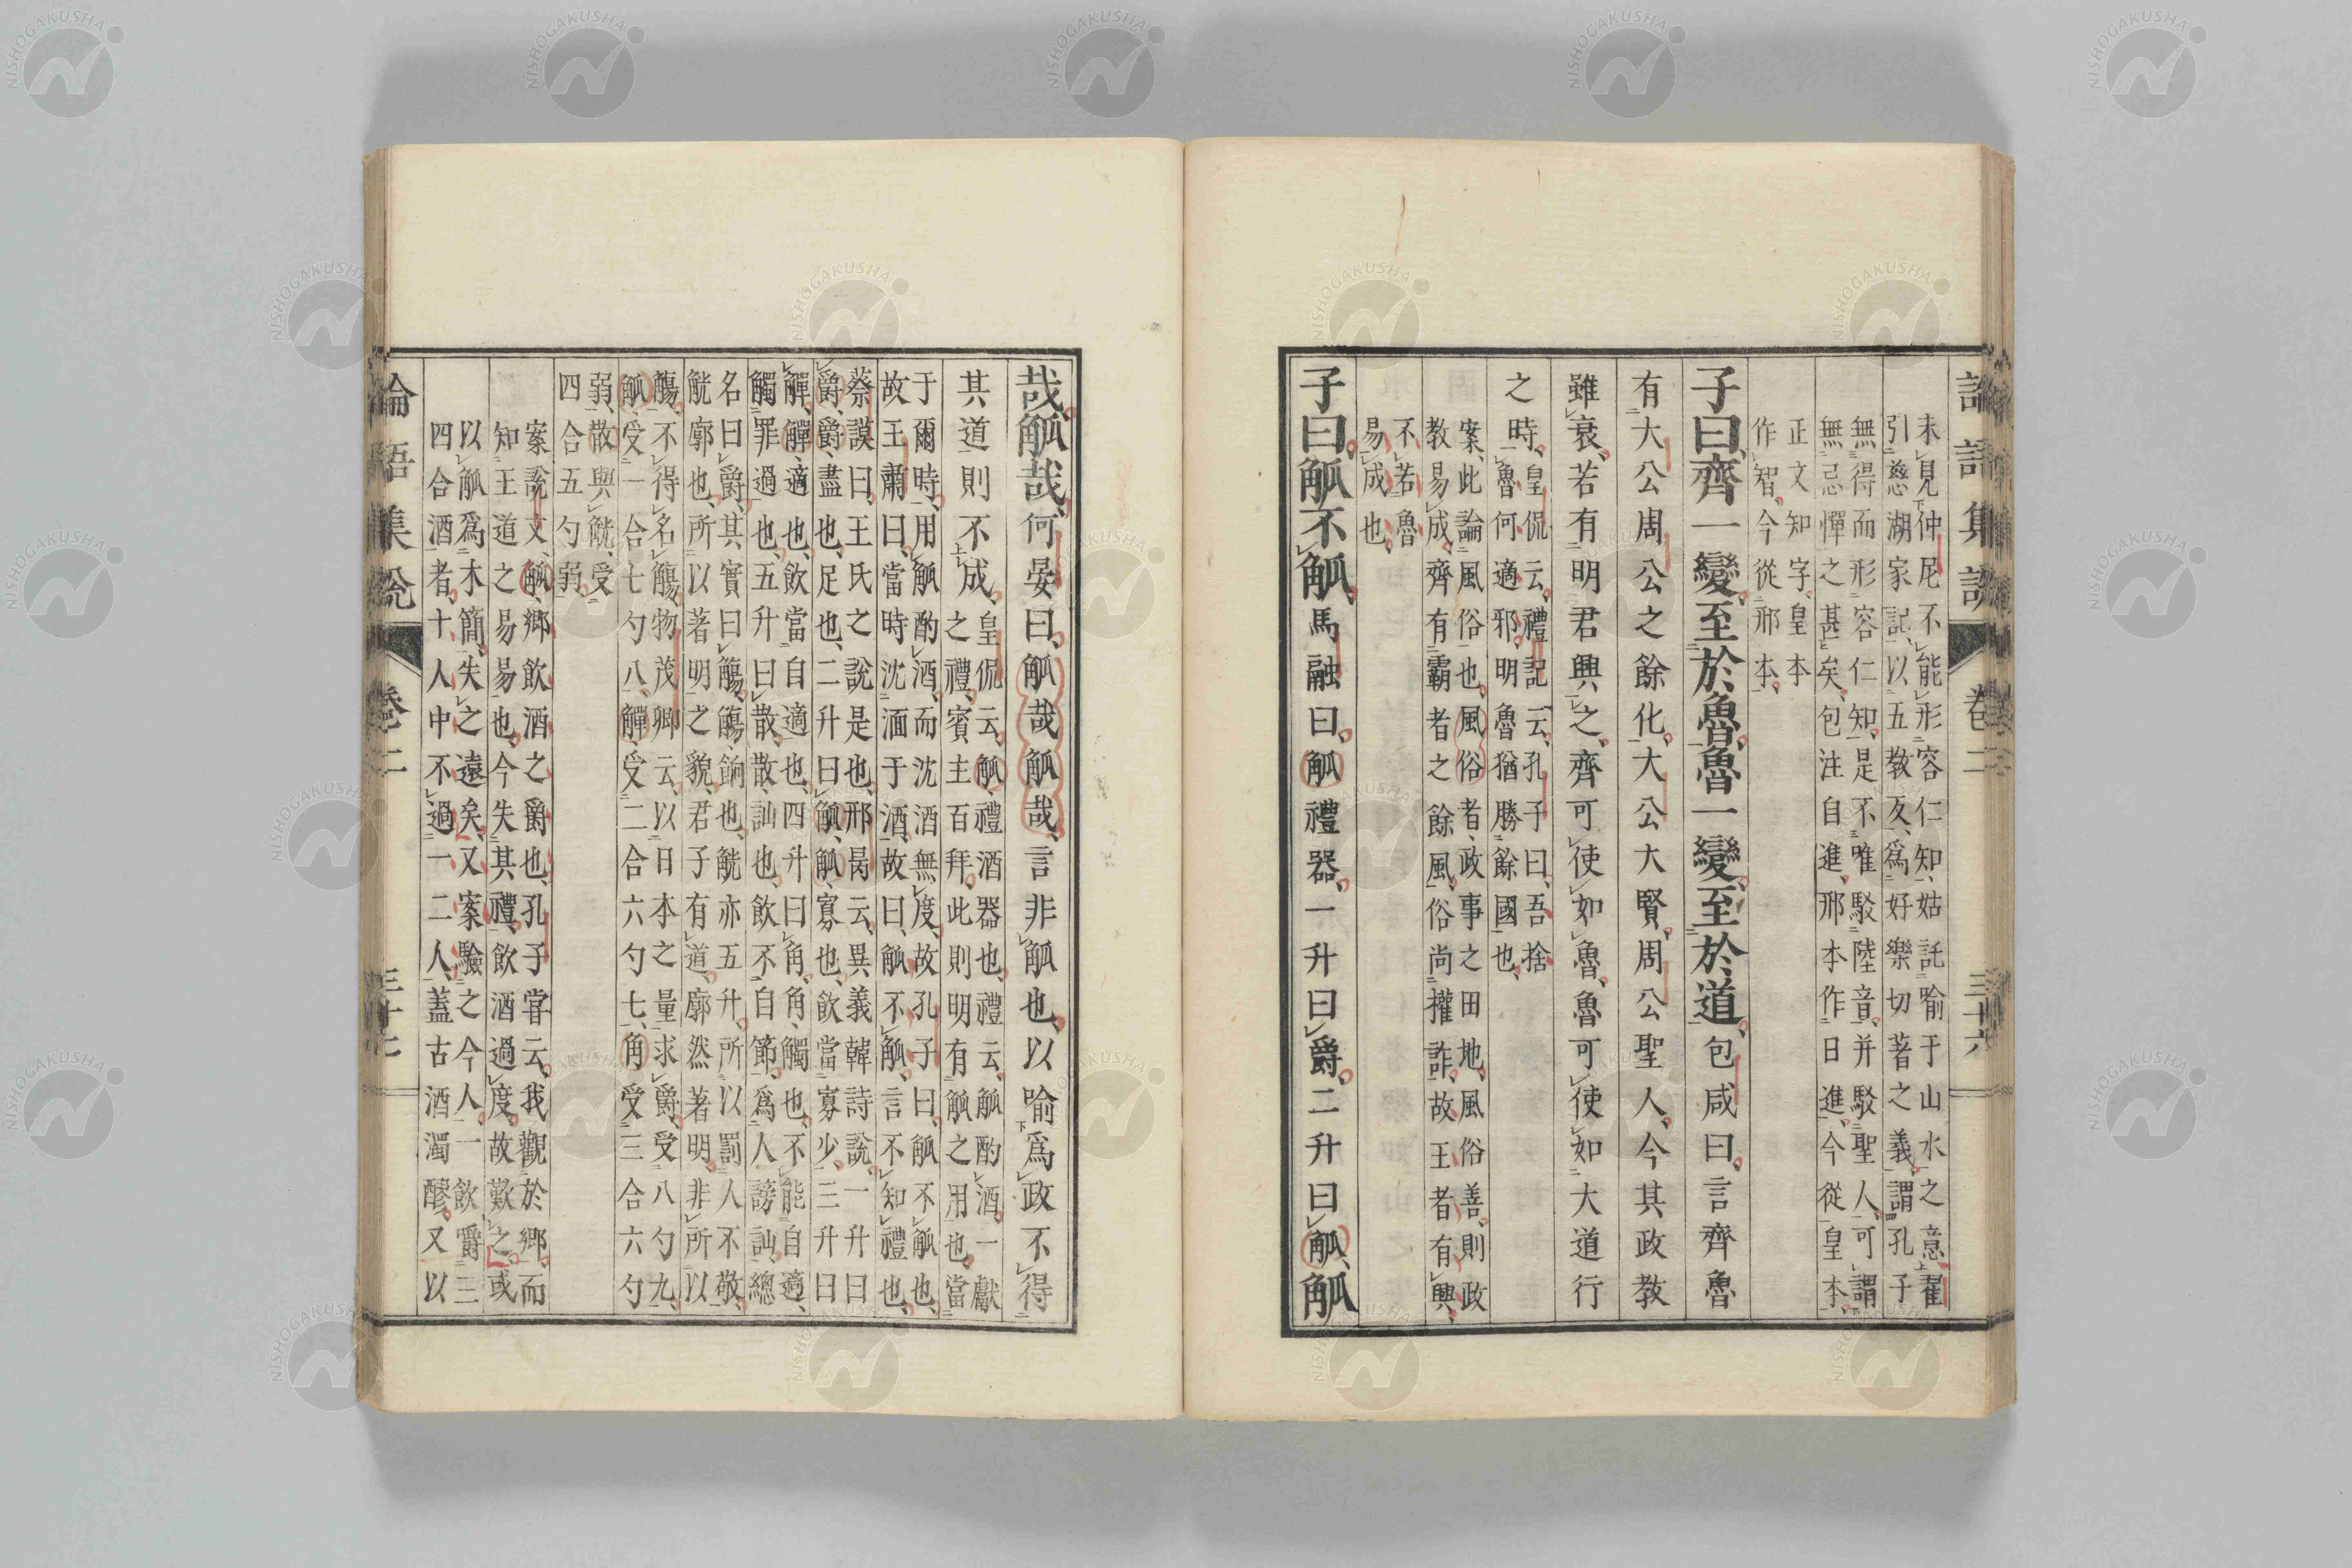 論語集說 卷二 三十六
未見仲尼不能形容仁知姑託喻于山水之意翟
引慈湖家記以五教反爲好樂切著之義謂孔子
無得而形容仁知是不唯駁陸音并駁聖人可謂
無忌憚之甚矣包注自進邢本作日進今從皇本
正文知字皇本
作智今從邢本
子曰齊一變至於魯魯一變至於道包咸曰言齊魯
有大公周公之餘化大公大賢周公聖人今其政教
雖衰若有明君興之齊可使如魯魯可使如大道行
之時皇侃云禮記云孔子曰吾捨
魯何適邪明魯猶勝餘國也
案此論風俗也風俗者政事之田地風俗善則政
教易成齊有霸者之餘風俗尚權詐故王者有興
不若魯
易成也
子曰觚不觚馬融曰觚禮器一升曰爵二升曰觚觚
哉觚哉何晏曰觚哉觚哉言非觚也以喻爲政不得
其道則不成皇侃云觚禮酒器也禮云觚酌酒一獻
之禮賓主百拜此則明有觚之用也當
于爾時用觚酌酒而沈酒無度故孔子曰觚不觚也
故王肅曰當時沈湎于酒故曰觚不觚言不知禮也
蔡謨曰王氏之說是也邢昺云異義韓詩說一升曰
爵爵盡也足也二升曰觚觚寡也飲當寡少三升曰
觶觶適也飲當自適也四升曰角角觸也不能自適
觸罪過也五升曰散散訕也飲不自節爲人謗訕總
名曰爵其實曰觴觴餉也觥亦五升所以罰人不敬
觥廓也所以著明之貌君子有道廓然著明非所以
觴不得名觴物茂卿云以日本之量求爵受八勺九
觚受一合七勺八觶受二合六勺七角受三合六勺
弱散與觥受
四合五勺弱
案說文觚鄉飲酒之爵也孔子嘗云我觀於鄉而
知王道之易易也今失其禮飲酒過度故歎之或
以觚爲木簡失之遠矣又案驗之今人一飲爵三
四合酒者十人中不過一二人蓋古酒濁醪又以
論語集說 卷二 三十七